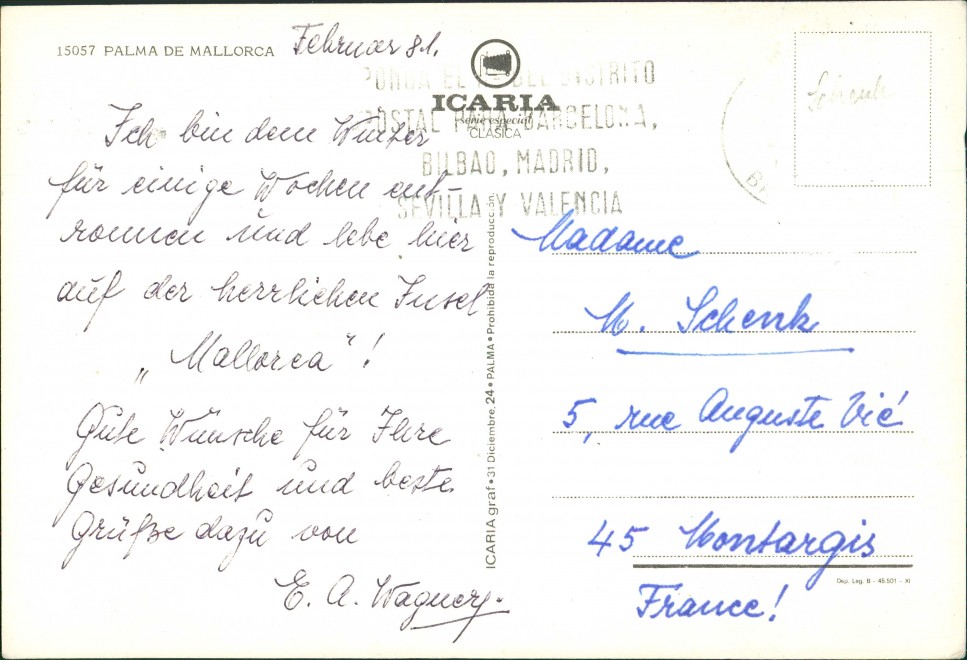 15057 PALMA DE MALLORCA
Februar 81.
ICARIA
serie especial
CLASICA
PONGA EL Nº DEL DISTRITO
POSTAL PARA BARCELONA,
BILBAO, MADRID,
SEVILLA Y VALENCIA
Schenk
Ich bin dem Winter
für einige Wochen ent-
ronnen und lebe hier
auf der herrlichen Insel
„Mallorca"!
Gute Wünsche für Ihre
Gesundheit und beste
Grüße dazu von
E. A. Wagner
ICARIA graf • 31 Diciembre, 24 • PALMA • Prohibida la reproducción
Madame
M. Schenk
5, rue Auguste Vié
45 Montargis
France!
Dep. Leg. B - 45.501 - XI